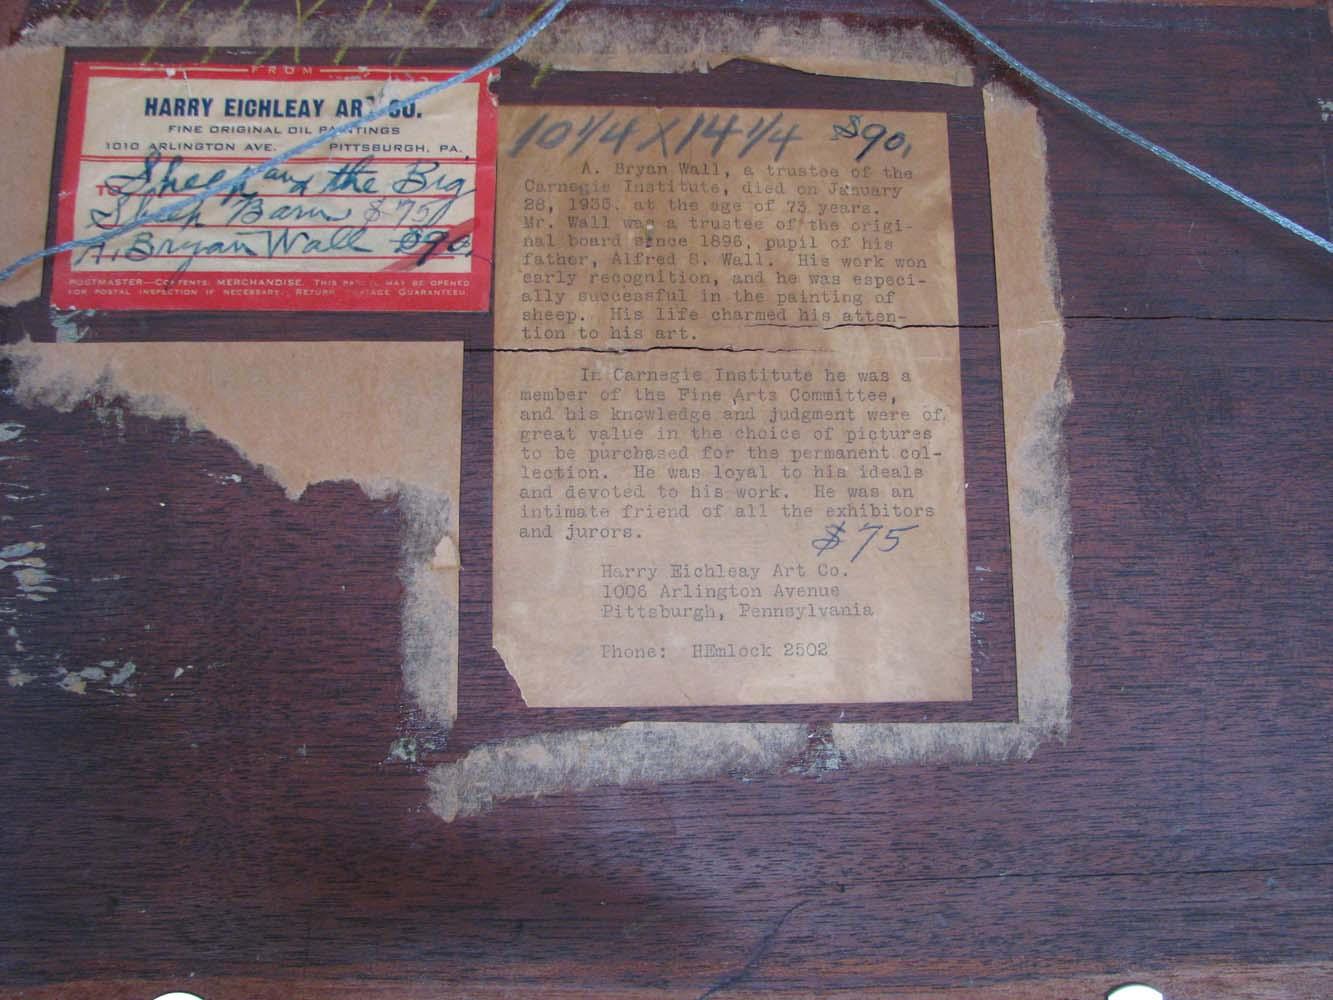 FROM
HARRY EICHLEAY ART CO.
FINE ORIGINAL OIL PAINTINGS
1010 ARLINGTON AVE. PITTSBURGH, PA.
TO Sheep and the Big
Sheep Barn $75
A. Bryan Wall $90.
POSTMASTER—CONTENTS: MERCHANDISE. THIS PARCEL MAY BE OPENED
FOR POSTAL INSPECTION IF NECESSARY. RETURN POSTAGE GUARANTEED.
10 1/4 X 14 1/4 $90.
A. Bryan Wall, a trustee of the
Carnegie Institute, died on January
28, 1935, at the age of 73 years.
Mr. Wall was a trustee of the origi-
nal board since 1896, pupil of his
father, Alfred S. Wall. His work won
early recognition, and he was especi-
ally successful in the painting of
sheep. His life charmed his atten-
tion to his art.
In Carnegie Institute he was a
member of the Fine Arts Committee,
and his knowledge and judgment were of
great value in the choice of pictures
to be purchased for the permanent col-
lection. He was loyal to his ideals
and devoted to his work. He was an
intimate friend of all the exhibitors
and jurors.
$75
Harry Eichleay Art Co.
1006 Arlington Avenue
Pittsburgh, Pennsylvania
Phone: HEmlock 2502